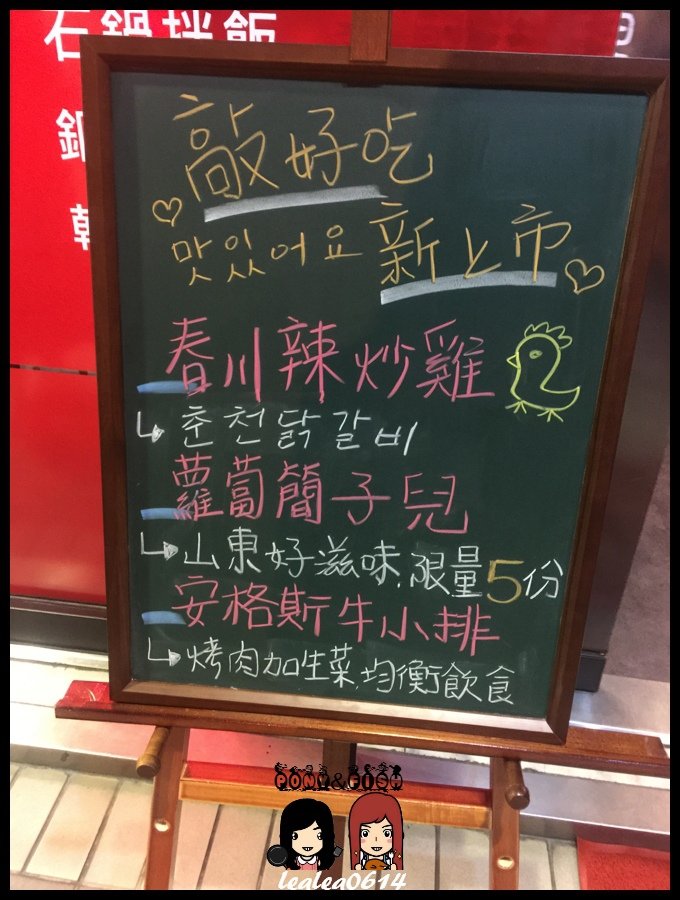 石鍋拌飯
敲好吃
맛있어요 新上市
春川辣炒雞
춘천닭갈비
蘿蔔簡子兒
山東好滋味,限量5份
安格斯牛小排
烤肉加生菜,均衡飲食
PONY&FISH
lealea0614